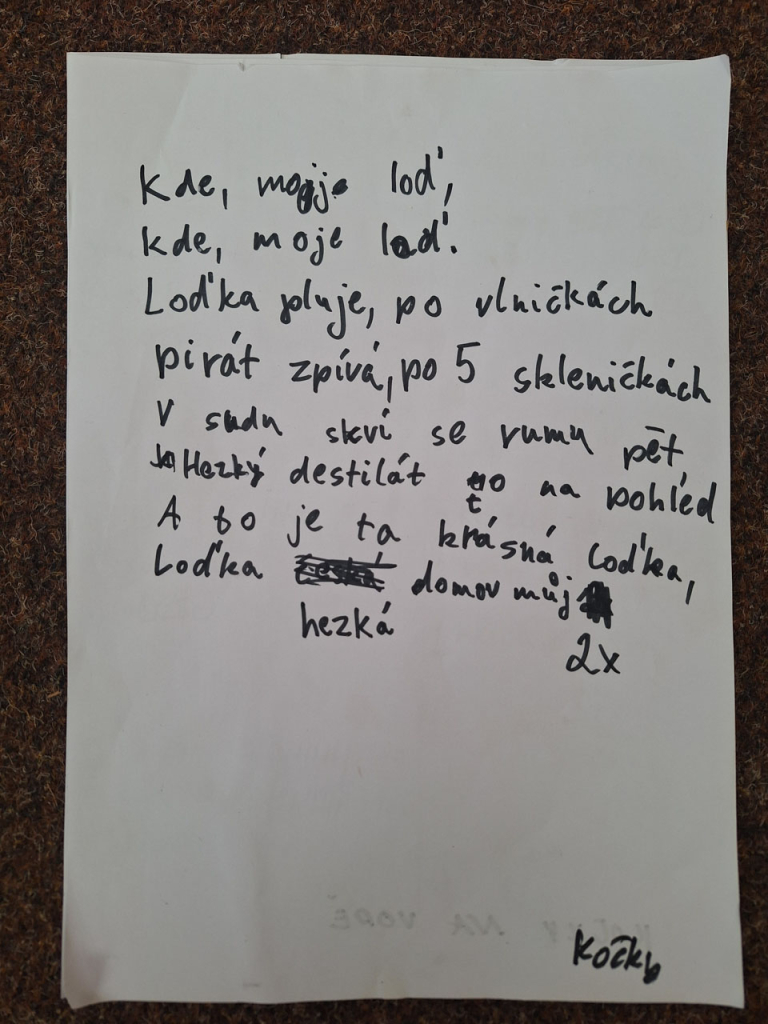 Kde, moje loď,
kde, moje loď.
Loďka pluje, po vlničkách
pirát zpívá, po 5 skleničkách
V sudu skví se rumu pět,
Hezký destilát to na pohled
A to je ta krásná loďka,
Loďka hezká domov můj
2x
NA VODĚ
Kočky